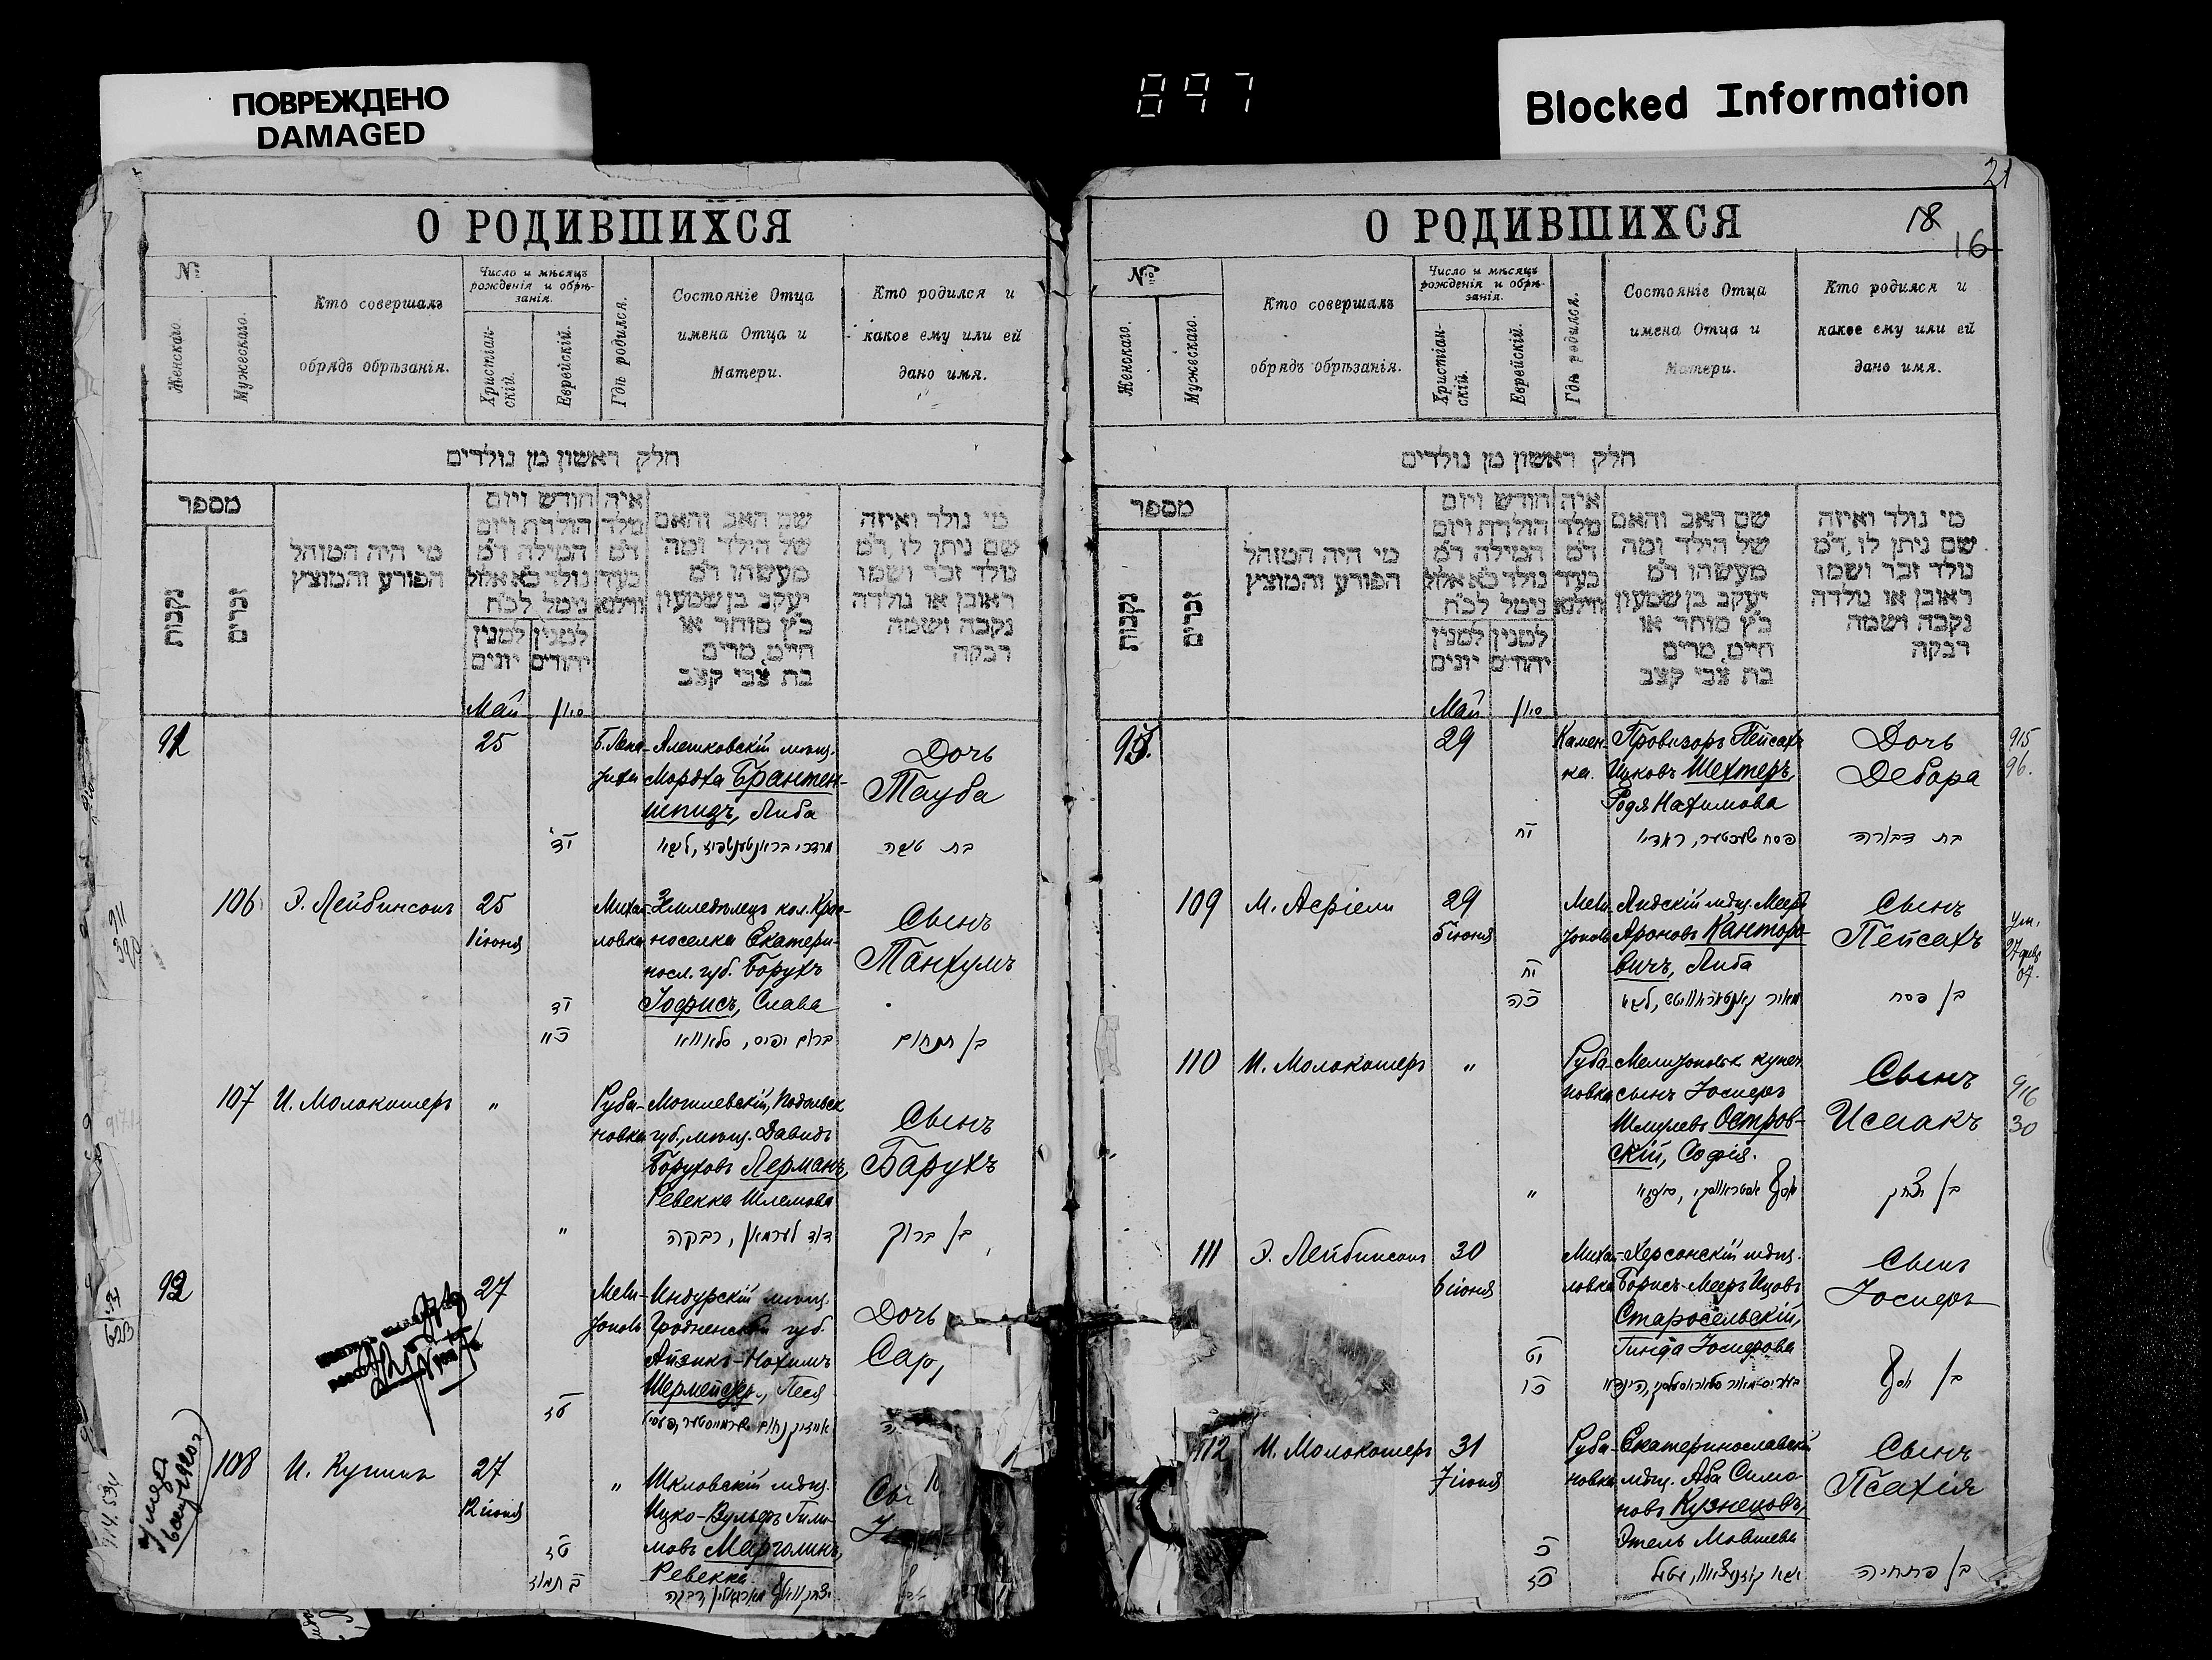 ПОВРЕЖДЕНО
DAMAGED
897
Blocked Information
О РОДИВШИХСЯ
№
Женскаго.
Мужескаго.
Кто совершалъ
обрядъ обрѣзанія.
Число и мѣсяцъ
рожденія и обрѣ-
занія.
Христіан-
скій.
Еврейскій.
Гдѣ родился.
Состояніе Отца
имена Отца и
Матери.
Кто родился и
какое ему или ей
дано имя.
חלק ראשון מן נולדים
מספר
נקבות
זכרים
מי היה המוהל
הפורע והמוצץ
חודש ויום
הולדת ויום
המילה ד׳מ
נולד כ׳א אלול
נימל לכ׳ח
למנין יונים
למנין יהודים
איה
מלד
ד׳מ
בעיר
ווילנא
שם האב והאם
של הילד ומה
מעשהו ד׳מ
יעקב בן שמעון
כ׳ץ סוחר או
חיים, מרים
בת צבי קצב
מי נולד ואיזה
שם ניתן לו, ד׳מ
נולד זכר ושמו
ראובן או נולדה
נקבה ושמה
רבקה
Май
סיון
25
Алешковскій мѣщ.
Мордха Брантен-
шпизъ, Либа
Дочь
Тауба
יד
106
Э. Лейбинсонъ
25
1 іюня
Михай-
ловка
Земледѣлецъ кол. Крас-
носелка Екатери-
носл. губ. Борухъ
Іофисъ, Слава
Сынъ
Танхумъ
יד
ברוך יפיס, סלאווא
בן תנחום
107
И. Молокошеръ
"
Руба-
новка
Могилевскій, Подольск
губ., мѣщ. Давидъ
Боруховъ Лерманъ,
Ревекка Шлемова
Сынъ
Барухъ
"
דוד לערמאן, רבקה
בן ברוך
92
27
Мели-
тополь
Индурскій мѣщ.
Гродненской губ.
Айзикъ-Нохимъ
Шермейстеръ, Песя
Дочь
טז
108
И. Купинъ
27
12 іюня
"
Шкловскій мѣщ.
Ицко-Вульфъ Гили-
мовъ Марголинъ,
Ревекка
טז
О РОДИВШИХСЯ
21
18
16
№
Женскаго.
Мужескаго.
Кто совершалъ
обрядъ обрѣзанія.
Число и мѣсяцъ
рожденія и обрѣ-
занія.
Христіан-
скій.
Еврейскій.
Гдѣ родился.
Состояніе Отца
имена Отца и
Матери.
Кто родился и
какое ему или ей
дано имя.
חלק ראשון מן נולדים
מספר
נקבות
זכרים
מי היה המוהל
הפורע והמוצץ
חודש ויום
הולדת ויום
המילה ד׳מ
נולד כ׳א אלול
נימל לכ׳ח
למנין יונים
למנין יהודים
איה
מלד
ד׳מ
בעיר
ווילנא
שם האב והאם
של הילד ומה
מעשהו ד׳מ
יעקב בן שמעון
כ׳ץ סוחר או
חיים, מרים
בת צבי קצב
מי נולד ואיזה
שם ניתן לו, ד׳מ
נולד זכר ושמו
ראובן או נולדה
נקבה ושמה
רבקה
Май
סיון
29
Камен-
ка.
Провизоръ Пейсахъ
Ицковъ Шехтеръ,
Родя Нахимова
Дочь
Дебора
915
96.
יח
בת דבורה
109
М. Асріели
29
5 іюня
Мели-
тополь
Лидскій мѣщ. Мееръ
Ароновъ Канторо-
вичъ, Либа
Сынъ
Пейсахъ
ум.
יח
כה
בן פסח
110
И. Молокошеръ
"
Руба-
новка
Мелитопольск. купеч.
сынъ Іосифъ
Шмулевъ Остров-
скій, Софія.
Сынъ
Исаакъ
916
30
"
בן יצחק
111
Э. Лейбинсонъ
30
6 іюня
Михай-
ловка
Херсонскій мѣщ.
Борисъ-Мееръ Ицовъ
Старосельскій,
Гинда Іосифова
Сынъ
Іосифъ
יט
כו
בן יוסף
112
И. Молокошеръ
31
7 іюня
Руба-
новка
Екатеринославскій
мѣщ. Аба Симо-
новъ Кузнецовъ,
Этель Мовшева
Сынъ
Псахія
כ
כז
בן פתחיה